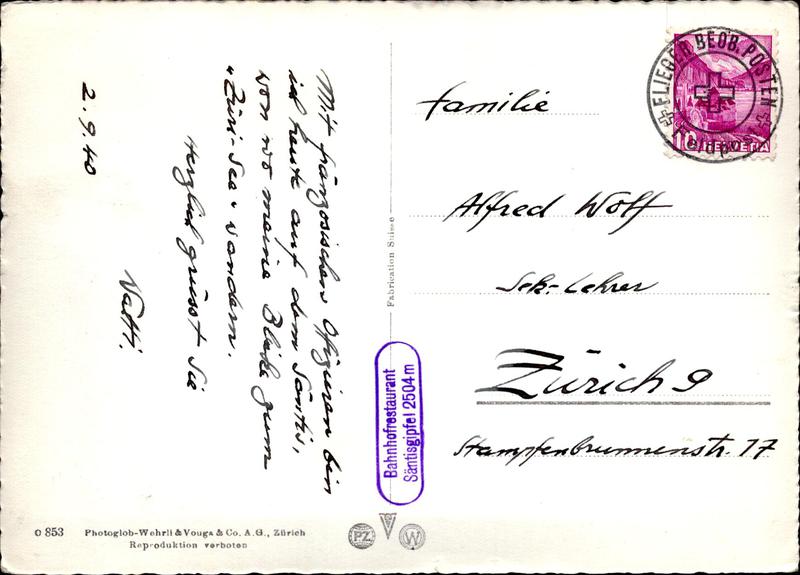 Mit französischen Offizieren bin
ich heute auf dem Säntis,
von wo meine Blicke zum
"Züri-See" wandern.
Herzlich grüsst Sie
2.9.40
Familie
Alfred Wolf
Sek-Lehrer
Zürich 9
Stampfenbrunnenstr. 17
FLIEGER BEOB. POSTEN
Feldpost
10 HELVETIA
Fabrication Suisse
Bahnhofrestaurant
Säntisgipfel 2504m
O 853 Photoglob-Wehrli & Vouga & Co. A.G., Zürich
Reproduktion verboten
PZ
V
W